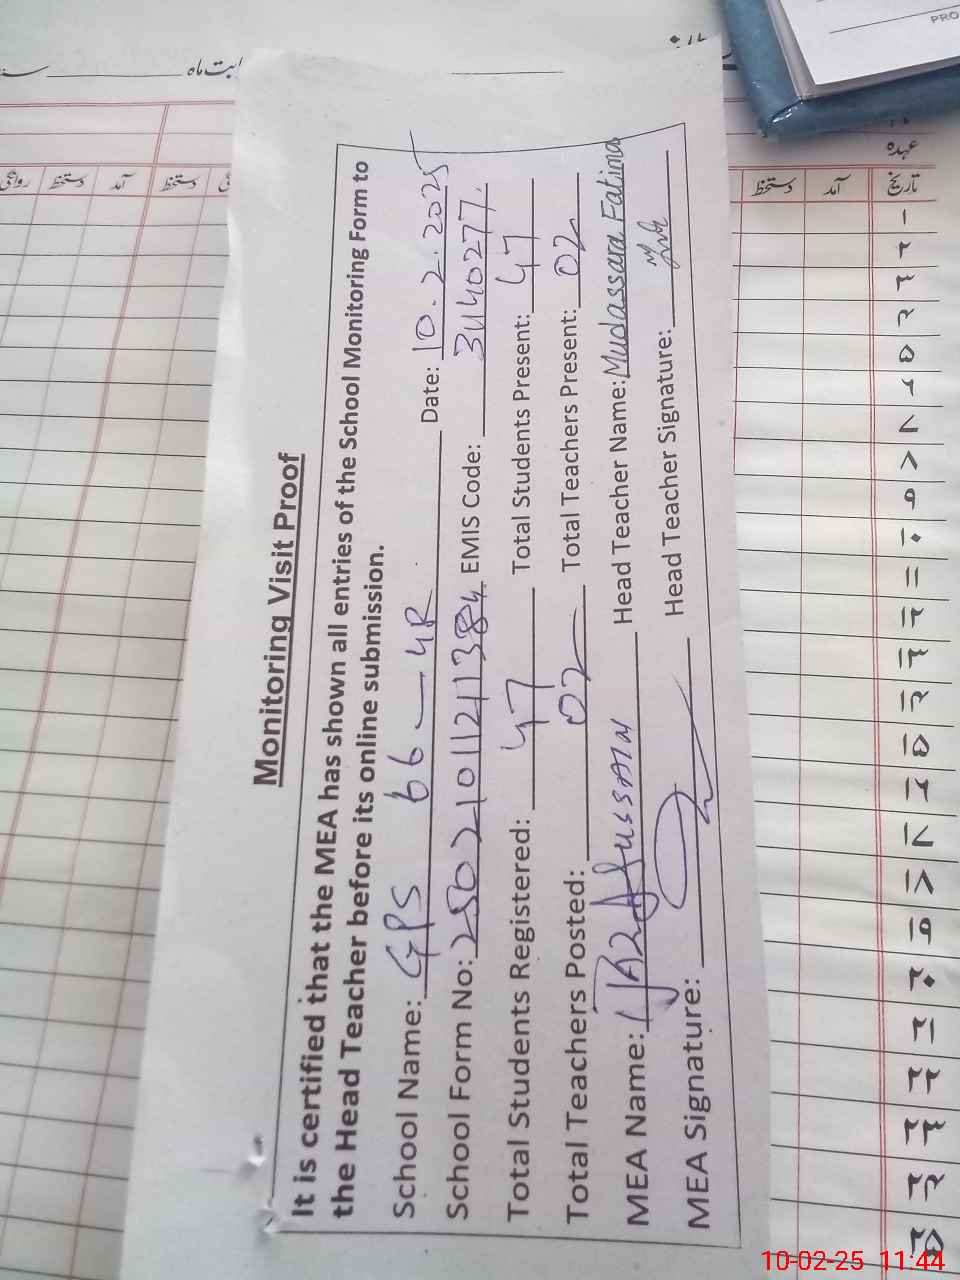 Monitoring Visit Proof
It is certified that the MEA has shown all entries of the School Monitoring Form to
the Head Teacher before its online submission.
School Name: GPS 66-4R Date: 10.2.2025
School Form No: 2502101121384 EMIS Code: 31140277.
Total Students Registered: 47 Total Students Present: 47
Total Teachers Posted: 02 Total Teachers Present: 02
MEA Name: HUSSAIN Head Teacher Name: Mudassara Fatima
MEA Signature: Head Teacher Signature:
بابت ماہ
عہدہ
تاریخ آمد دستخط
دستخط آمد دستخط روانگی
۱
۲
۳
۴
۵
۶
۷
۸
۹
۱۰
۱۱
۱۲
۱۳
۱۴
۱۵
۱۶
۱۷
۱۸
۱۹
۲۰
۲۱
۲۲
۲۳
۲۴
۲۵
PRO
10-02-25 11:44